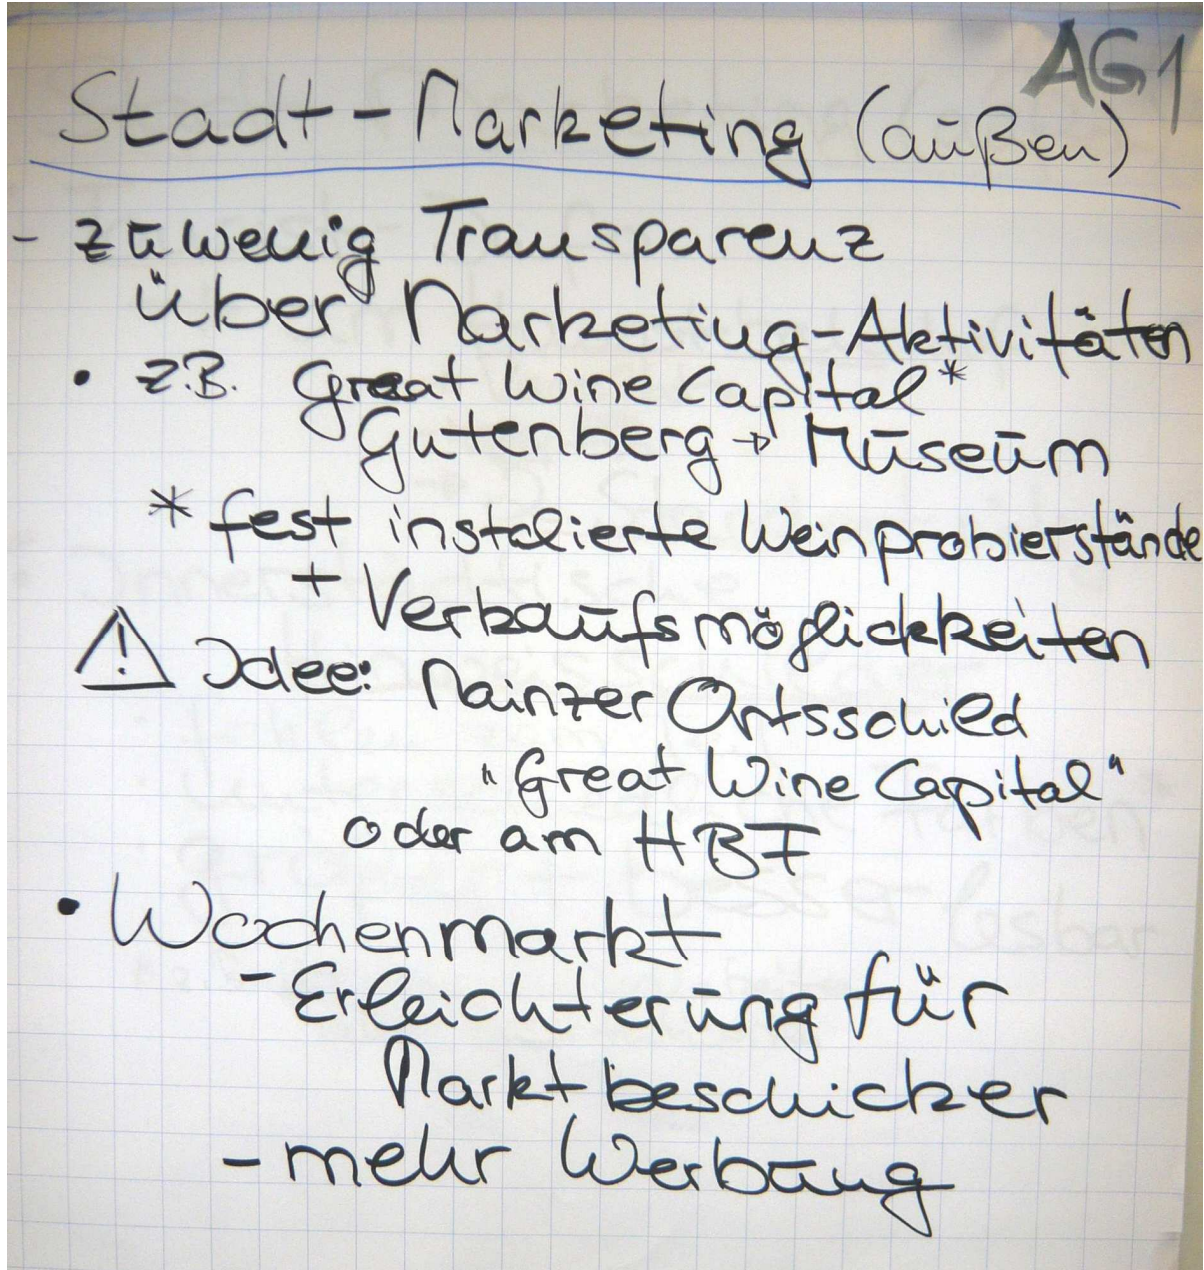 AG1
Stadt-Marketing (außen)
- zu wenig Transparenz
über Marketing-Aktivitäten
• z.B. Great Wine Capital*
Gutenberg → Museum
* fest instalierte Weinprobierstände
+ Verkaufsmöglickkeiten
⚠ Idee: Mainzer Ortsschild
"Great Wine Capital"
oder am HBF
• Wochenmarkt
- Erleichterung für
Marktbeschicker
- mehr Werbung